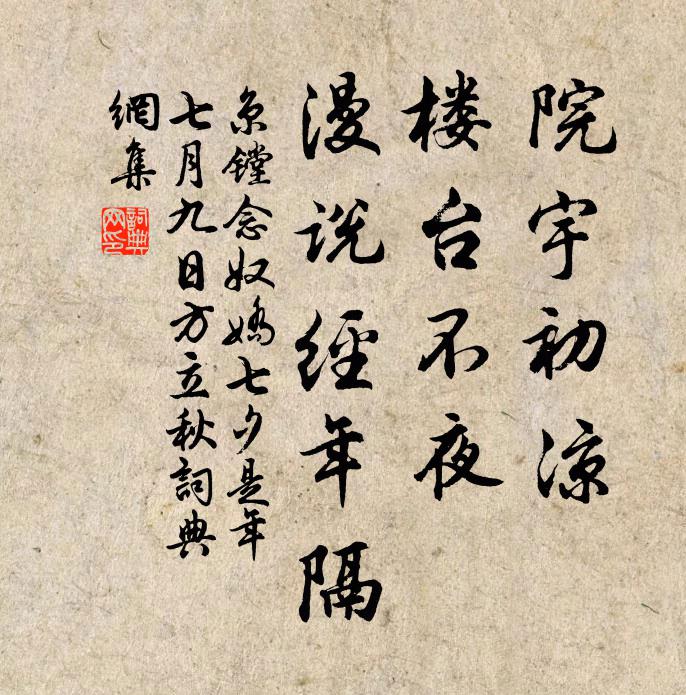 院宇初凉
楼台不夜
漫说經年隔
京镗念奴嬌七夕是年
七月九日方立秋詞典
網集
詞典
网印